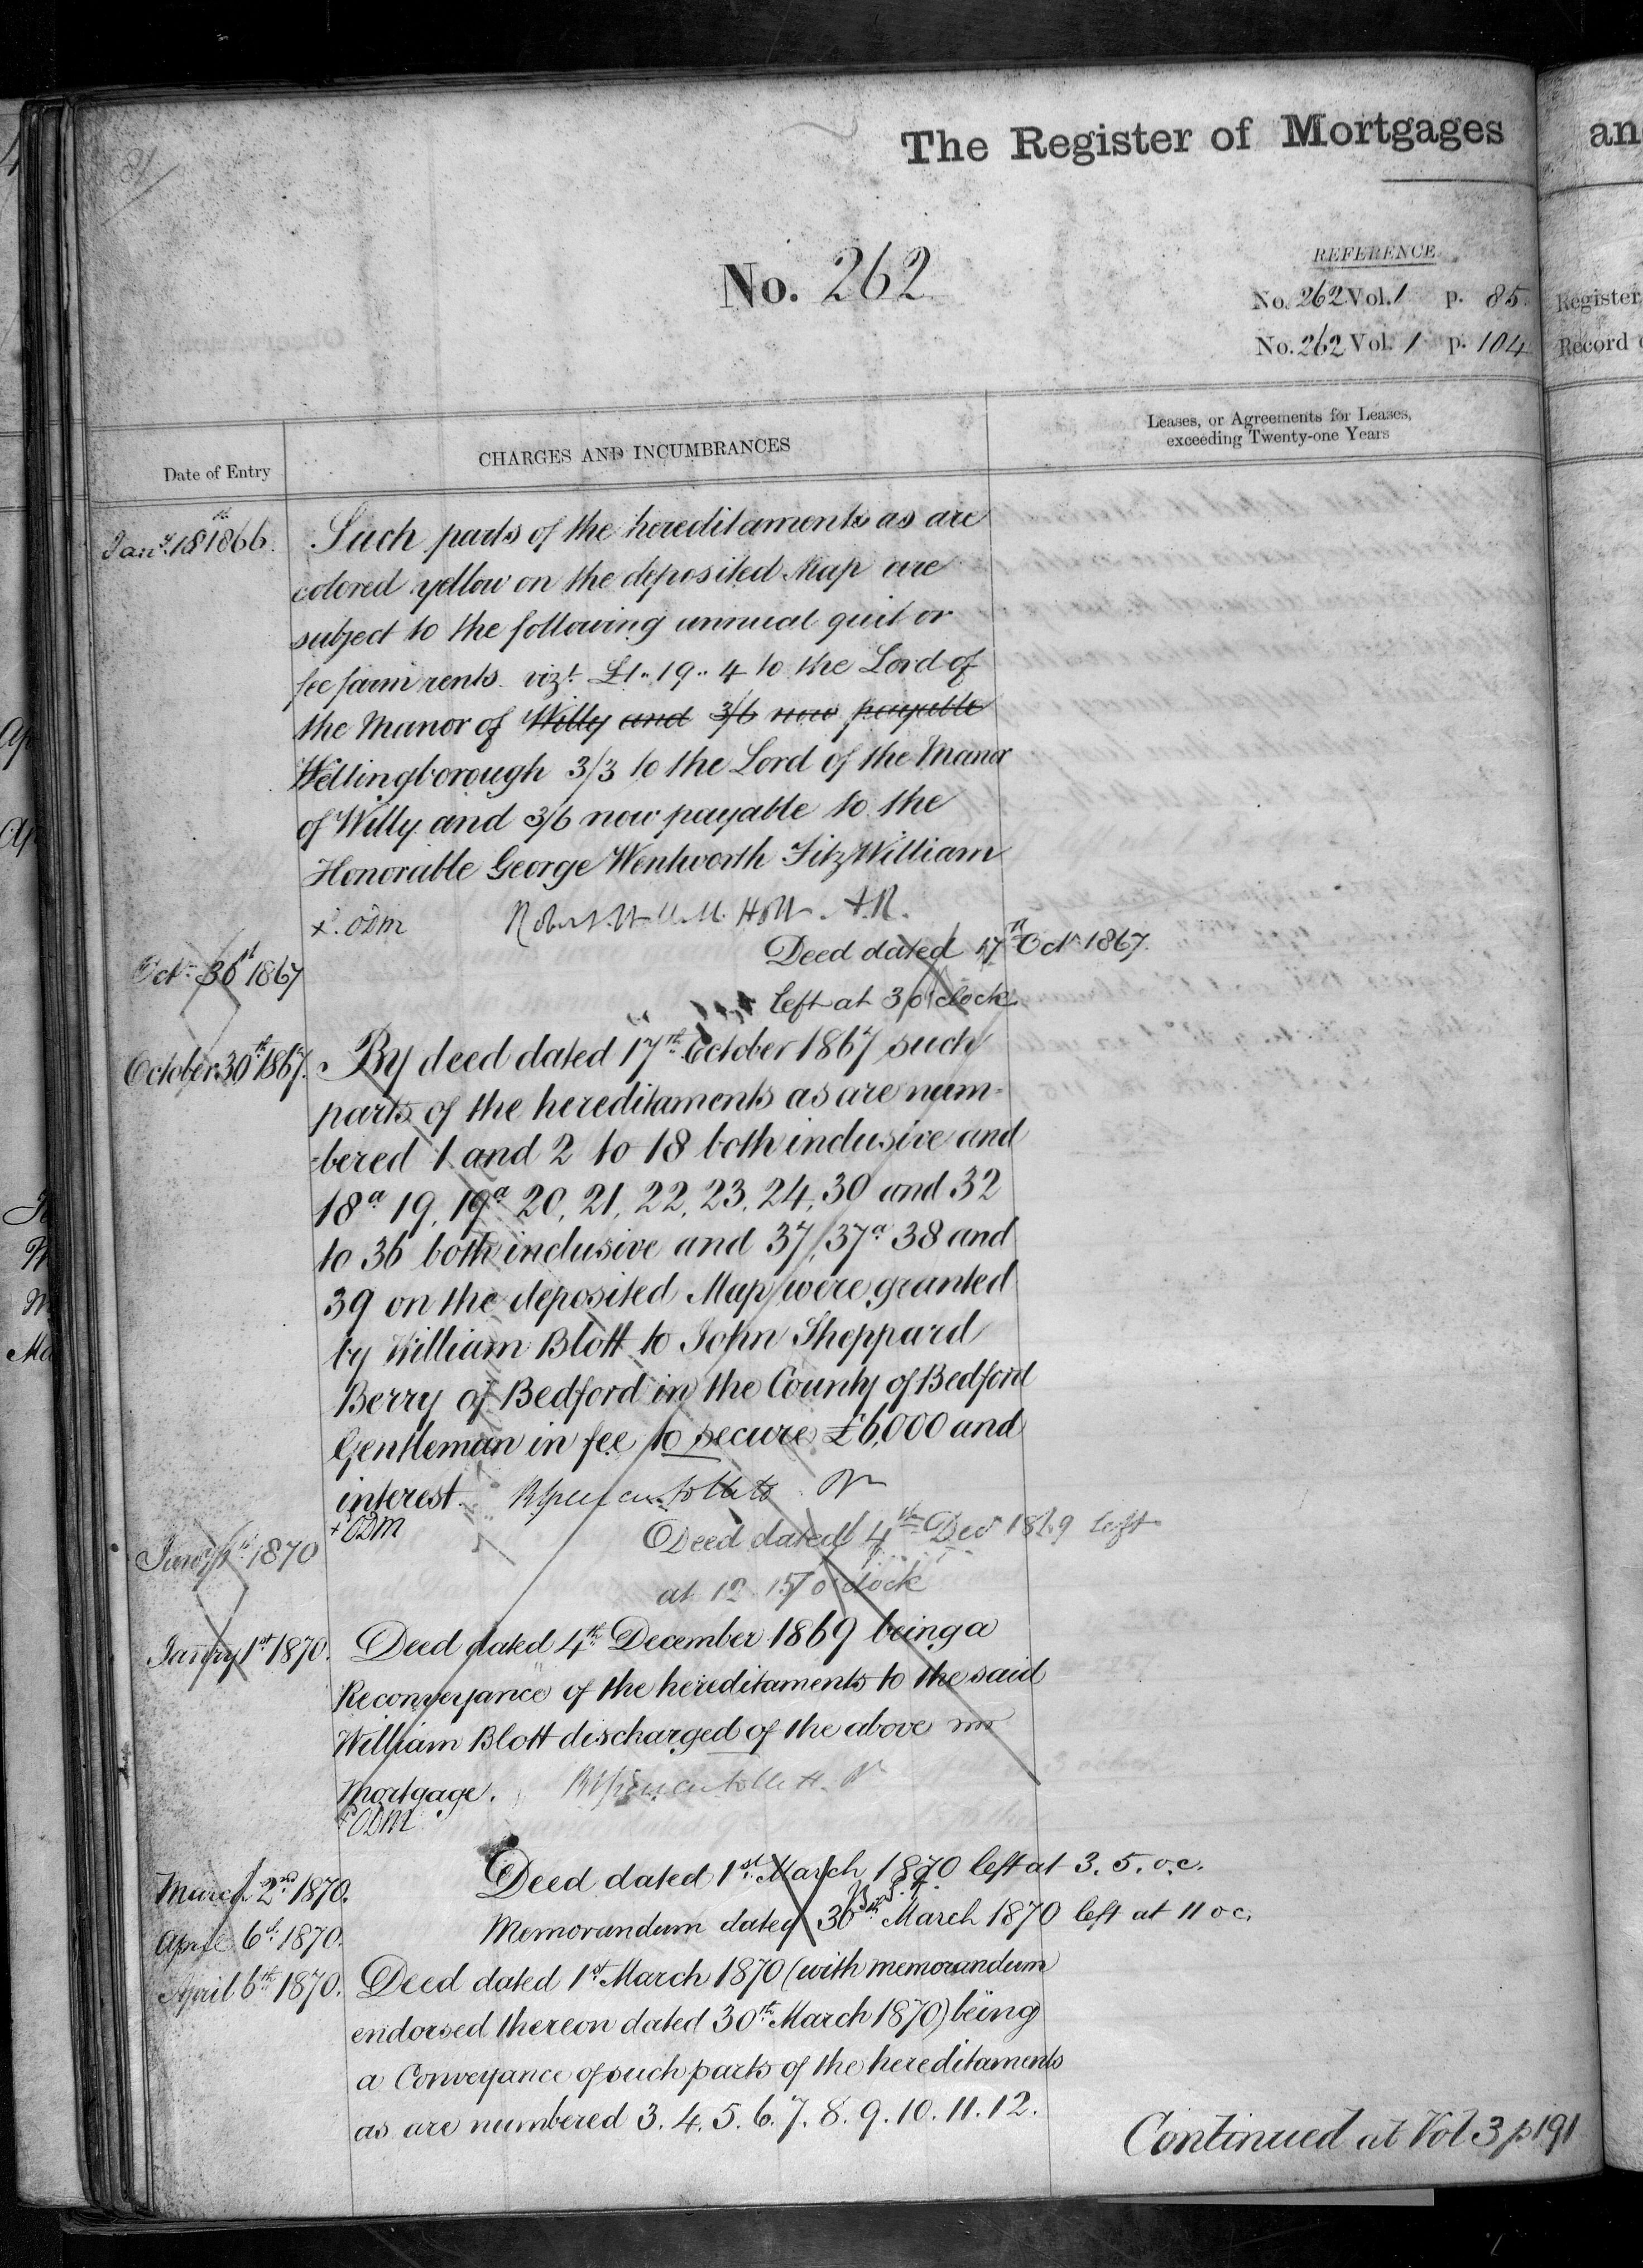 81
The Register of Mortgages
an
No. 262
REFERENCE
No. 262 Vol. 1 p. 85.
Register
No. 262 Vol. 1 p. 104
Record
Date of Entry
CHARGES AND INCUMBRANCES
Leases, or Agreements for Leases,
exceeding Twenty-one Years
Jany. 18th 1866.
Such parts of the hereditaments as are
colored yellow on the deposited Map are
subject to the following annual quit or
fee farm rents vizt. £1..19..4 to the Lord of
the Manor of Willy and 3/6 now payable
Wellingborough 3/3 to the Lord of the Manor
of Willy and 3/6 now payable to the
Honorable George Wentworth FitzWilliam
x. ODM A.R.
Deed dated 17th Octr. 1867.
Oct. 1867
left at 3 o'clock
October 30th 1867. By deed dated 17th October 1867 such
parts of the hereditaments as are num-
-bered 1 and 2 to 18 both inclusive and
18a 19, 19a 20, 21, 22, 23, 24, 30 and 32
to 36 both inclusive and 37, 37a 38 and
39 on the deposited Map were granted
by William Blott to John Sheppard
Berry of Bedford in the County of Bedford
Gentleman in fee to secure £6,000 and
interest.
+ ODM
Jany 1st 1870
Deed dated 4th Decr 1869 left
at 12.15 o'clock
Janry 1st 1870. Deed dated 4th December 1869 being a
Reconveyance of the hereditaments to the said
William Blott discharged of the above
Mortgage.
+ ODM
March 2nd 1870. Deed dated 1st March 1870 left at 3.5. o.c.
April 6th 1870. Memorandum dated 30th March 1870 left at 11 o c.
April 6th 1870. Deed dated 1st March 1870 (with memorandum
endorsed thereon dated 30th March 1870) being
a Conveyance of such parts of the hereditaments
as are numbered 3. 4. 5. 6. 7. 8. 9. 10. 11. 12.
Continued at Vol 3 p 191